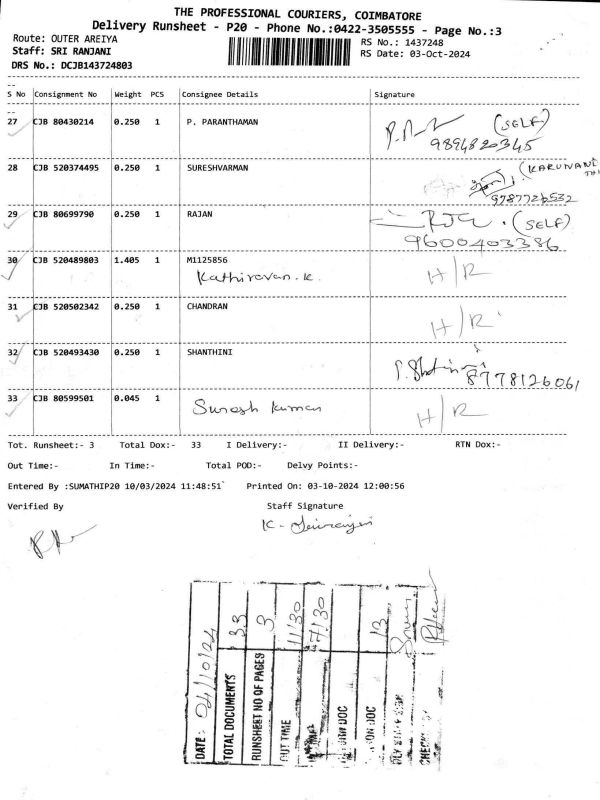 THE PROFESSIONAL COURIERS, COIMBATORE
Delivery Runsheet - P20 - Phone No.:0422-3505555 - Page No.:3
Route: OUTER AREIYA
RS No.: 1437248
Staff: SRI RANJANI
RS Date: 03-Oct-2024
DRS No.: DCJB143724803
S No Consignment No Weight PCS Consignee Details Signature
27 CJB 80430214 0.250 1 P. PARANTHAMAN (SELF)
9894820345
28 CJB 520374495 0.250 1 SURESHVARMAN
9787726532
29 CJB 80699790 0.250 1 RAJAN (SELF)
9600403386
30 CJB 520489803 1.405 1 M1125856 H/R
Kathiravan.K
31 CJB 520502342 0.250 1 CHANDRAN H/R
32 CJB 520493430 0.250 1 SHANTHINI
8778126061
33 CJB 80599501 0.045 1 Suresh Kumar H/R
Tot. Runsheet:- 3 Total Dox:- 33 I Delivery:- II Delivery:- RTN Dox:-
Out Time:- In Time:- Total POD:- Delvy Points:-
Entered By :SUMATHIP20 10/03/2024 11:48:51 Printed On: 03-10-2024 12:00:56
Verified By Staff Signature
DATE: 04/10/24
TOTAL DOCUMENTS 33
RUNSHEET NO OF PAGES 3
OUT TIME 11/30
7/30
DOC
DOC 13